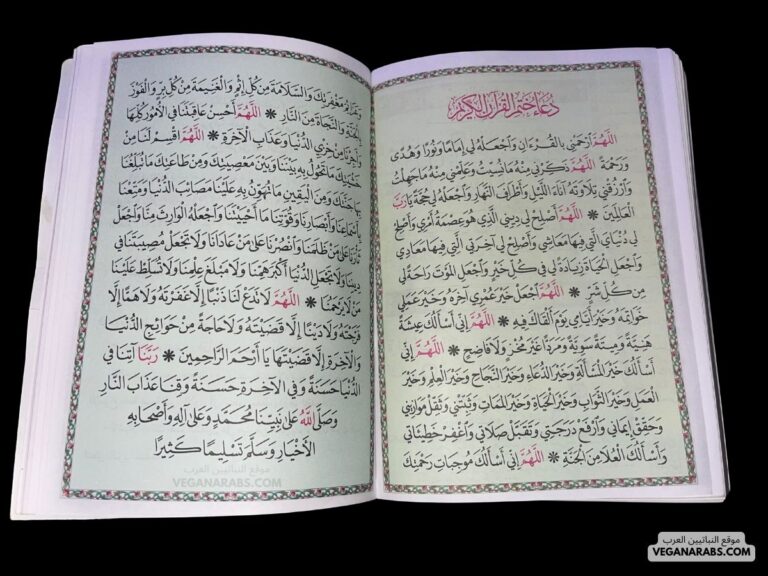 دُعَاءُ خَتْمِ الْقُرْآنِ الْكَرِيمِ
اللَّهُمَّ ارْحَمْنِي بِالْقُرْءَانِ وَاجْعَلْهُ لِي إِمَامًا وَنُورًا وَهُدًى
وَرَحْمَةً اللَّهُمَّ ذَكِّرْنِي مِنْهُ مَا نُسِّيتُ وَعَلِّمْنِي مِنْهُ مَا جَهِلْتُ
وَارْزُقْنِي تِلَاوَتَهُ آنَاءَ اللَّيْلِ وَأَطْرَافَ النَّهَارِ وَاجْعَلْهُ لِي حُجَّةً يَا رَبَّ
الْعَالَمِينَ ✵ اللَّهُمَّ أَصْلِحْ لِي دِينِي الَّذِي هُوَ عِصْمَةُ أَمْرِي وَأَصْلِحْ
لِي دُنْيَايَ الَّتِي فِيهَا مَعَاشِي وَأَصْلِحْ لِي آخِرَتِي الَّتِي فِيهَا مَعَادِي
وَاجْعَلِ الْحَيَاةَ زِيَادَةً لِي فِي كُلِّ خَيْرٍ وَاجْعَلِ الْمَوْتَ رَاحَةً لِي
مِنْ كُلِّ شَرٍّ ✵ اللَّهُمَّ اجْعَلْ خَيْرَ عُمْرِي آخِرَهُ وَخَيْرَ عَمَلِي
خَوَاتِمَهُ وَخَيْرَ أَيَّامِي يَوْمَ أَلْقَاكَ فِيهِ ✵ اللَّهُمَّ إِنِّي أَسْأَلُكَ عِيشَةً
هَنِيَّةً وَمِيتَةً سَوِيَّةً وَمَرَدًّا غَيْرَ مُخْزٍ وَلَا فَاضِحٍ ✵ اللَّهُمَّ إِنِّي
أَسْأَلُكَ خَيْرَ الْمَسْأَلَةِ وَخَيْرَ الدُّعَاءِ وَخَيْرَ النَّجَاحِ وَخَيْرَ الْعِلْمِ وَخَيْرَ
الْعَمَلِ وَخَيْرَ الثَّوَابِ وَخَيْرَ الْحَيَاةِ وَخَيْرَ الْمَمَاتِ وَثَبِّتْنِي وَثَقِّلْ مَوَازِينِي
وَحَقِّقْ إِيمَانِي وَارْفَعْ دَرَجَتِي وَتَقَبَّلْ صَلَاتِي وَاغْفِرْ خَطِيئَاتِي
وَأَسْأَلُكَ الْعُلَا مِنَ الْجَنَّةِ ✵ اللَّهُمَّ إِنِّي أَسْأَلُكَ مُوجِبَاتِ رَحْمَتِكَ
وَعَزَائِمَ مَغْفِرَتِكَ وَالسَّلَامَةَ مِنْ كُلِّ إِثْمٍ وَالْغَنِيمَةَ مِنْ كُلِّ بِرٍّ وَالْفَوْزَ
بِالْجَنَّةِ وَالنَّجَاةَ مِنَ النَّارِ ✵ اللَّهُمَّ أَحْسِنْ عَاقِبَتَنَا فِي الْأُمُورِ كُلِّهَا
وَأَجِرْنَا مِنْ خِزْيِ الدُّنْيَا وَعَذَابِ الْآخِرَةِ ✵ اللَّهُمَّ اقْسِمْ لَنَا مِنْ
خَشْيَتِكَ مَا تَحُولُ بِهِ بَيْنَنَا وَبَيْنَ مَعْصِيَتِكَ وَمِنْ طَاعَتِكَ مَا تُبَلِّغُنَا
بِهَا جَنَّتَكَ وَمِنَ الْيَقِينِ مَا تُهَوِّنُ بِهِ عَلَيْنَا مَصَائِبَ الدُّنْيَا وَمَتِّعْنَا
بِأَسْمَاعِنَا وَأَبْصَارِنَا وَقُوَّتِنَا مَا أَحْيَيْتَنَا وَاجْعَلْهُ الْوَارِثَ مِنَّا وَاجْعَلْ
ثَأْرَنَا عَلَى مَنْ ظَلَمَنَا وَانْصُرْنَا عَلَى مَنْ عَادَانَا وَلَا تَجْعَلْ مُصِيبَتَنَا فِي
دِينِنَا وَلَا تَجْعَلِ الدُّنْيَا أَكْبَرَ هَمِّنَا وَلَا مَبْلَغَ عِلْمِنَا وَلَا تُسَلِّطْ عَلَيْنَا
مَنْ لَا يَرْحَمُنَا ✵ اللَّهُمَّ لَا تَدَعْ لَنَا ذَنْبًا إِلَّا غَفَرْتَهُ وَلَا هَمًّا إِلَّا
فَرَّجْتَهُ وَلَا دَيْنًا إِلَّا قَضَيْتَهُ وَلَا حَاجَةً مِنْ حَوَائِجِ الدُّنْيَا
وَالْآخِرَةِ إِلَّا قَضَيْتَهَا يَا أَرْحَمَ الرَّاحِمِينَ ✵ رَبَّنَا آتِنَا فِي
الدُّنْيَا حَسَنَةً وَفِي الْآخِرَةِ حَسَنَةً وَقِنَا عَذَابَ النَّارِ
وَصَلَّى اللَّهُ عَلَى نَبِيِّنَا مُحَمَّدٍ وَعَلَى آلِهِ وَأَصْحَابِهِ
الْأَخْيَارِ وَسَلَّمَ تَسْلِيمًا كَثِيرًا
موقع النباتيين العرب
VEGANARABS.COM
موقع النباتيين العرب
VEGANARABS.COM